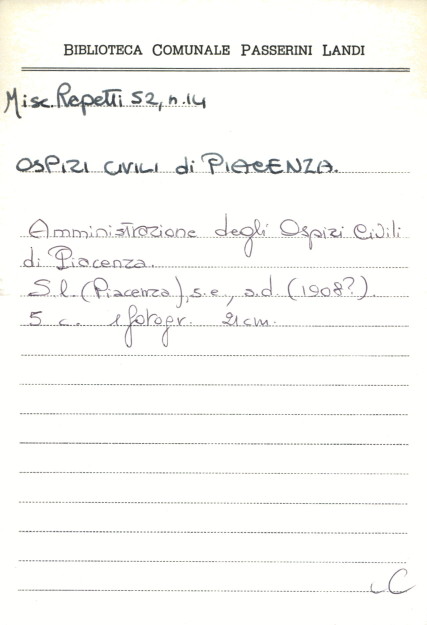 BIBLIOTECA COMUNALE PASSERINI LANDI
Misc. Repetti 52, n. 14
OSPIZI CIVILI di PIACENZA.
Amministrazione degli Ospizi Civili
di Piacenza.
S.l. (Piacenza), s.e., a.d. (1908?).
5 c. 1 fotogr. 21 cm.
C